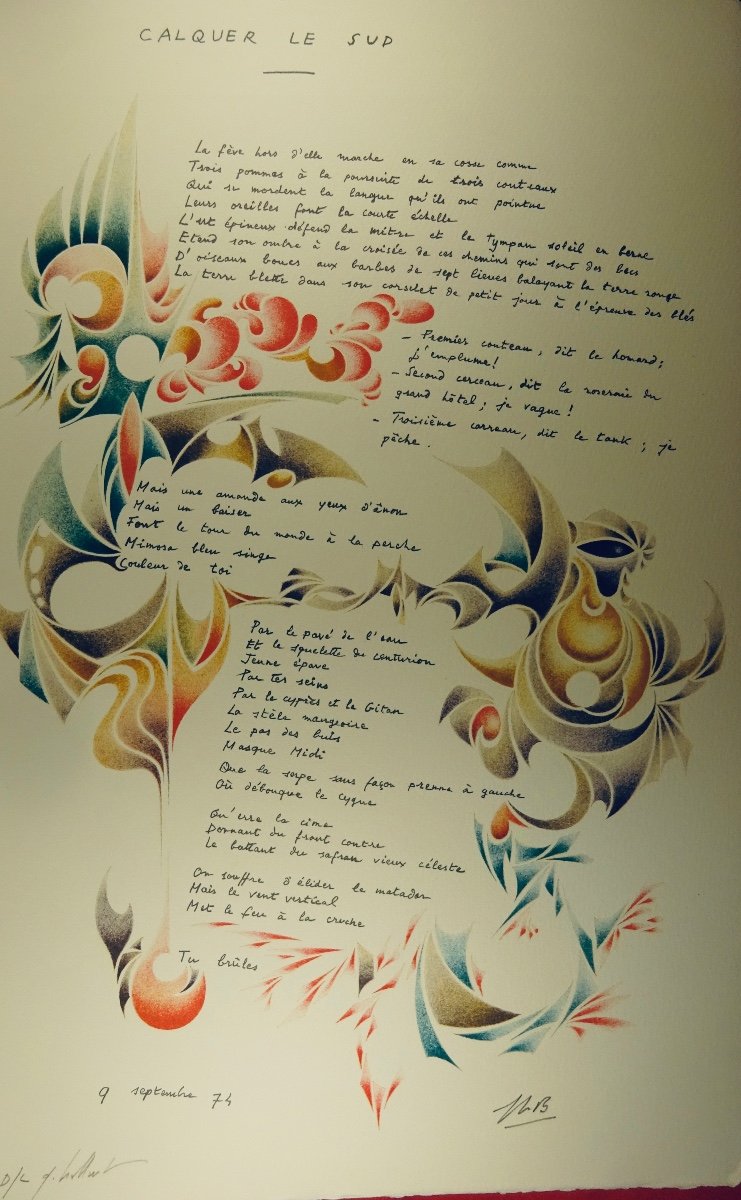 CALQUER LE SUD
La fève hors d'elle marche en sa cosse comme
Trois pommes à la poursuite de trois couteaux
Qui se mordent la langue qu'ils ont pointue
Leurs oreilles font la courte échelle
L'est épineux défend la mitre et le tympan soleil en berne
Etend son ombre à la croisée de ces chemins qui sont des becs
D'oiseaux boucs aux barbes de sept lieues balayant la terre rouge
La terre blette dans son corselet de petit jour à l'épreuve des blés
- Premier couteau, dit le homard;
j'emplume!
- Second cerceau, dit la roseraie du
grand hôtel; je vague!
- Troisième carreau, dit le tank; je
pêche.
Mais une amande aux yeux d'ânon
Mais un baiser
Font le tour du monde à la perche
Mimosa bleu singe
Couleur de toi
Par le pavé de l'eau
Et le squelette du centurion
Jeune épave
Par tes seins
Par le cyprès et le Gitan
La stèle mangeoire
Le pas des buis
Masque Midi
Que la serpe sans façon prenne à gauche
Où débouque le cygne
Qu'erre la cime
Donnant du front contre
Le battant du safran vieux céleste
On souffre d'élider le matador
Mais le vent vertical
Met le feu à la cruche
Tu brûles
9 septembre 74